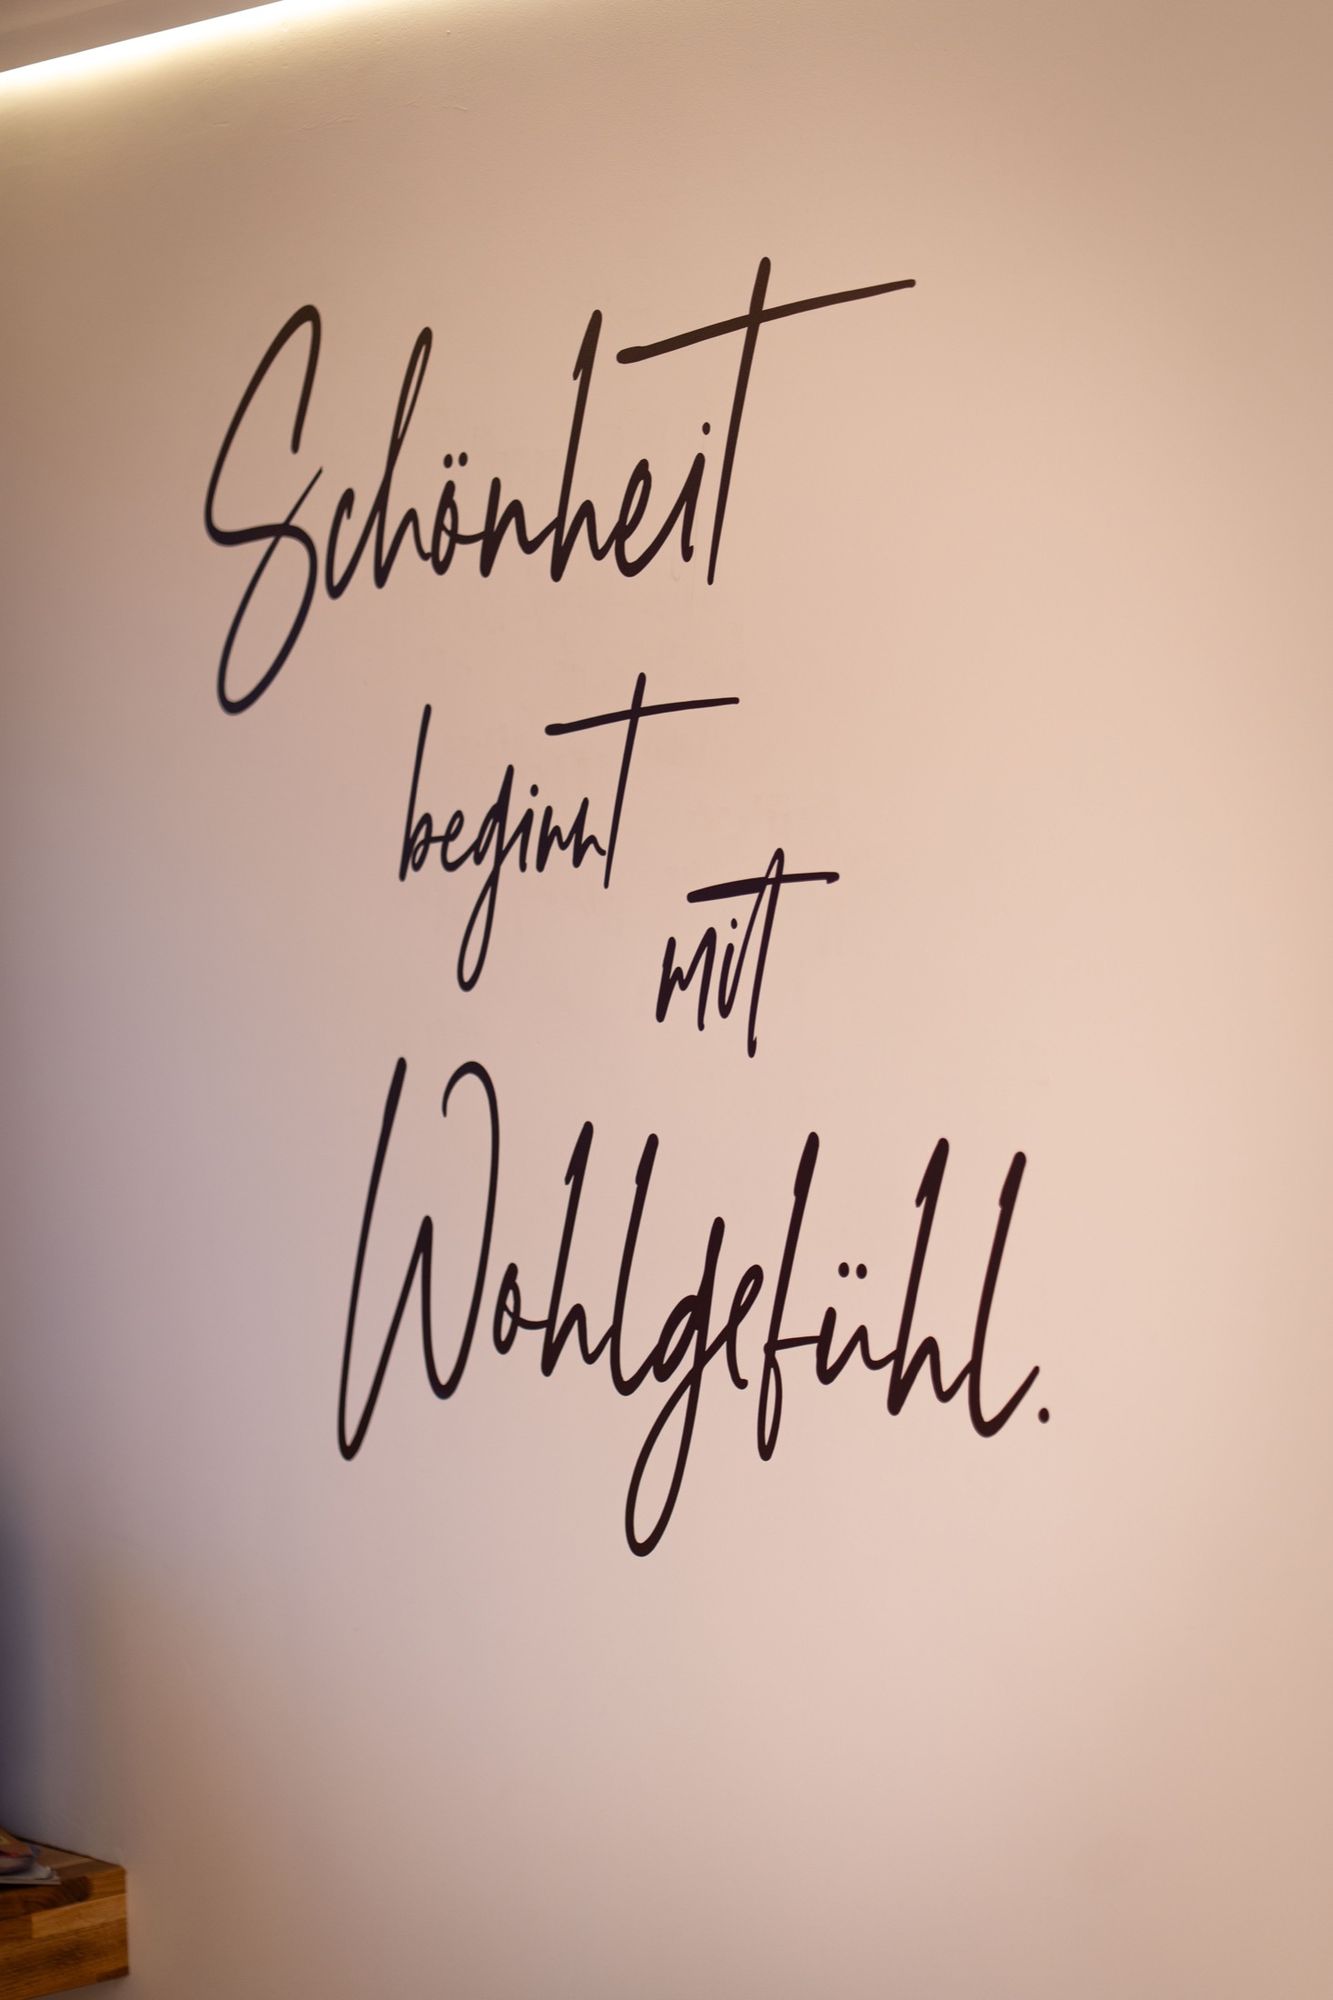 Schönheit
beginnt
mit
Wohlgefühl.